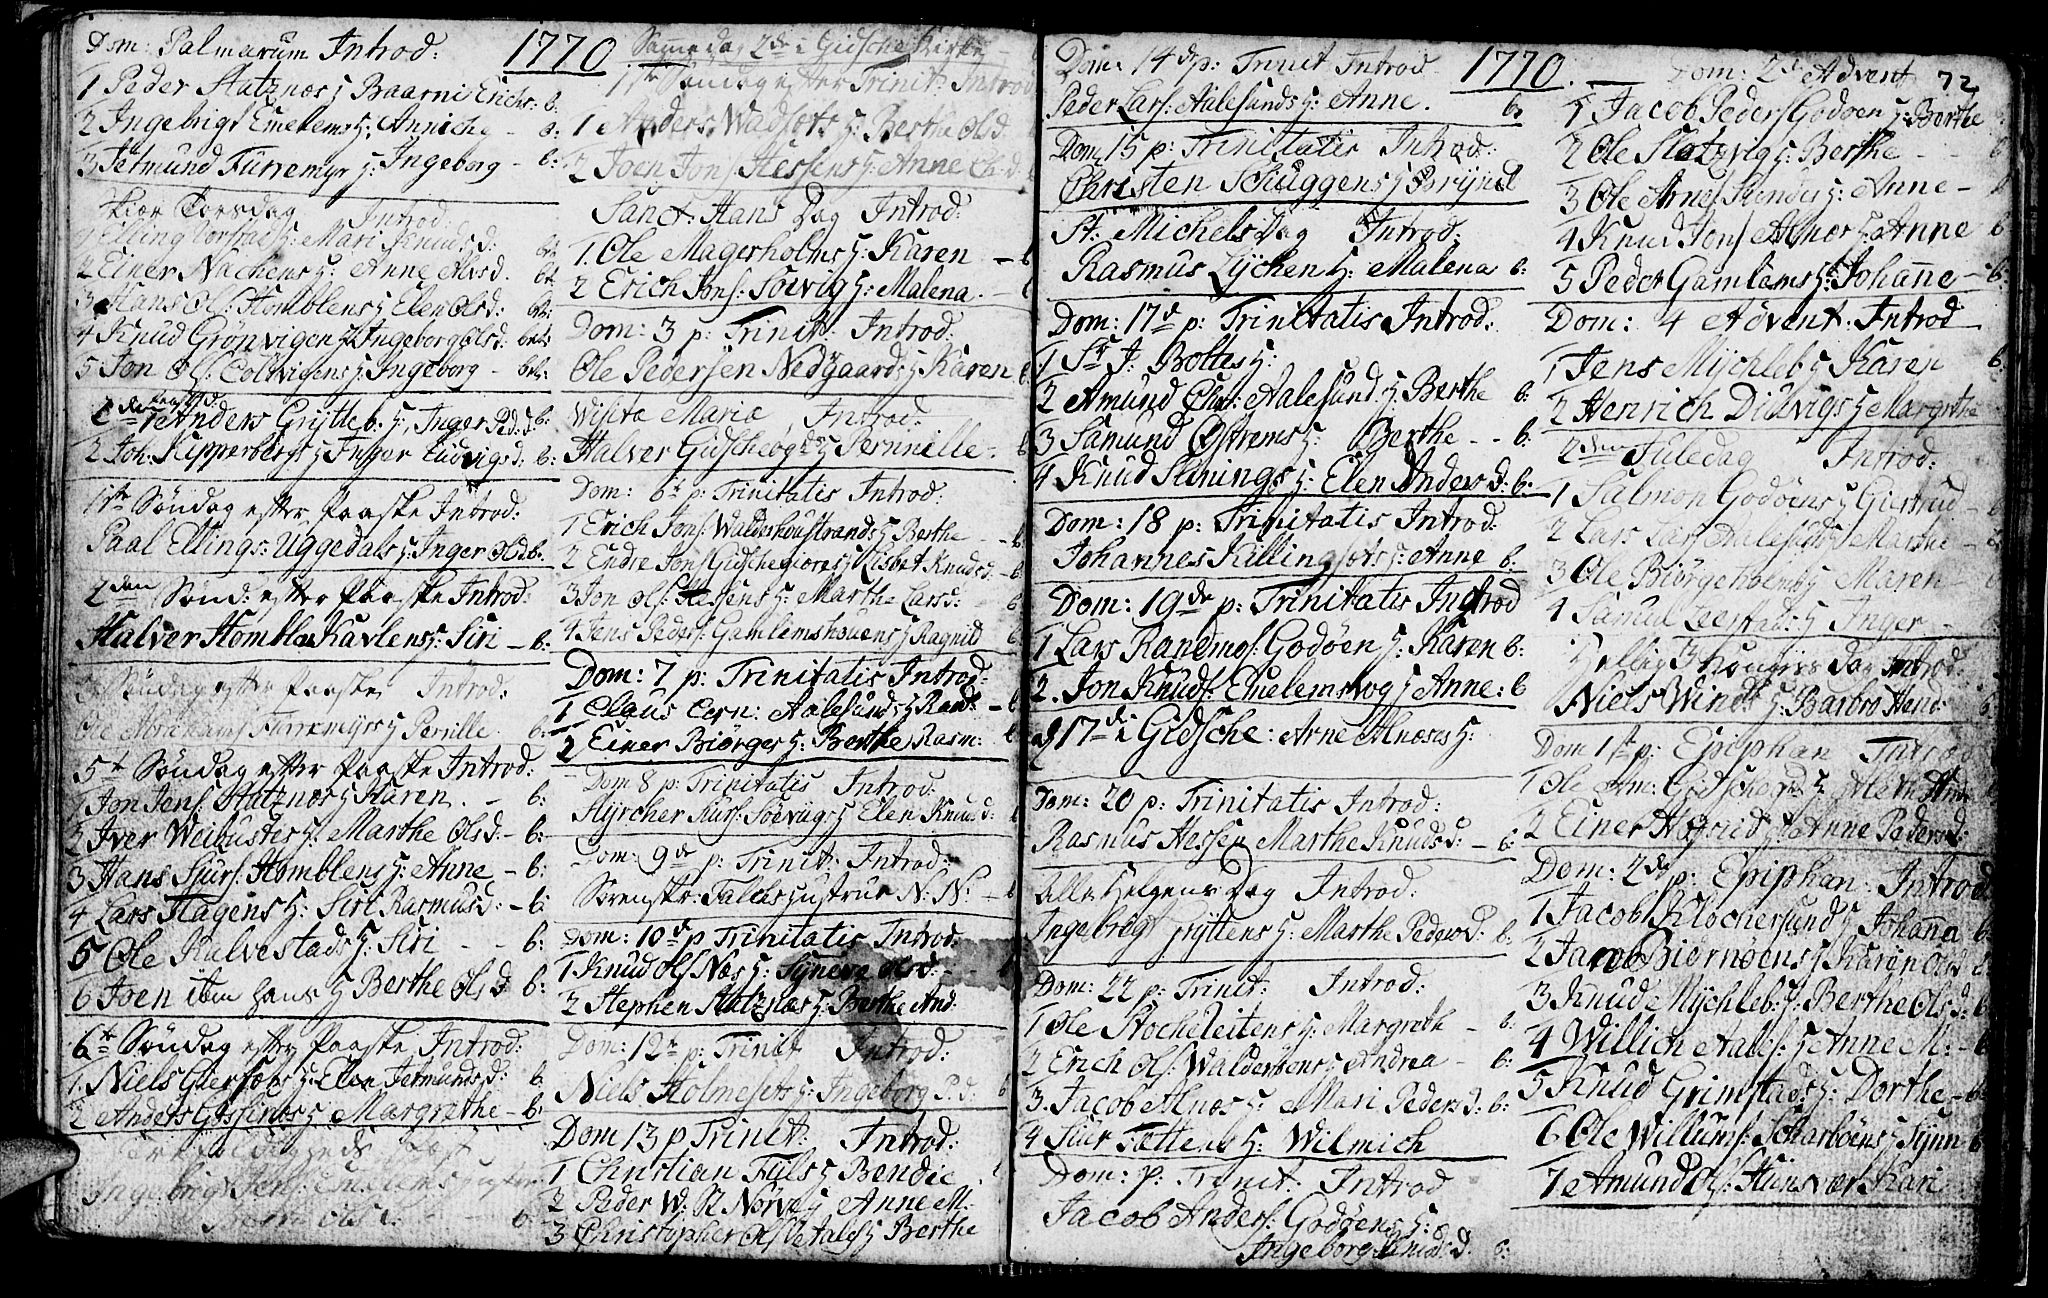 Dom: Palmarum Introd: 1770
1 Peder Statznæs H Baarni Erichs: b:
2 Ingebrigt Emelems H: Anniche - b:
3 Jetmund Furremyr H: Ingeborg - b:
Skiær Torsdag Introd:
1 Elling H: Mari Knudsd:
2 Einer Nachens H: Anne Alvsd. bt.
3 Hans Ols: Homblens H Elen Olsd: bt:
4 Knud Grönvigen H Ingeborg Olsd: bet:
5 Jon Ols: Coldvigens H: Ingeborg - bt:
Anders Grÿtteb: H: Inger Ped:d: b:
2 Joh: Klipperbergs H Inger Ludvigsd: b:
1te Söndag efter Paaske Introd:
Paal Ellings: Uggedals H: Inger Olsd b:
2den Sönd: efter Paaske Introd:
Halver Homblekavlens H: Siri - b:
3 Söndag efter Paaske Introd:
Ole Abrahams Furremÿrs H Pernille. b:
5te Söndag efter Paaske Introd:
1 Jon Jens: Statznæs H Karen. - b:
2 Iver Weibustes H: Marthe Olsd: - b:
3 Hans Siurs: Homblens H: Anne - b:
4 Lars Hagens H: Siri Rasmusd: - b:
5 Ole Kulvestads H: Siri - - b:
6 Joen ibm hans H Berthe Olsd: b:
6te Söndag efter Paaske Introd:
1. Niels H: Elen Jetmundsd: b
2 Anders H Margrethe - b:
Ingebrigt Jens: Emelems
Samme dag 2de i Gidsche Kirke
1te Söndag efter Trinit: Introd
1 Anders Wadsöts H: Berthe Olsd:
2 Joen Jons: Hessens H: Anne Olsd:
Sanct: Hans Dag Introd:
1. Ole Magerholms H: Karen - b
2 Erich Jons: Söevig H: Malena.
Dom: 3 p: Trinit: Introd:
Ole Pedersen Nedgaards H Karen b
Wisita: Maria Introd:
Halver H Pernnille. b
Dom: 6te p: Trinitatis Introd:
1 Erich Jons: Walderhoustrands H Berthe - - b
2 Endre Jons: Gidschegiores H Lisbet Knudsd: - b
3 Jon Ols: Hessens H: Marthe Larsd: b
4 Jens Peders: Gamlemshouens H Ragnild b
Dom: 7 p: Trinitatis Introd:
1 Claus Corn: Aalesunds H Rand: - b
2 Einer Biörges H: Berthe Rasm: b
Dom 8 p: Trinitatis Introd:
Hÿrcher Siurs: Söevigs H Elen Knudsd: b
Dom: 9de p: Trinit: Introd:
Sorenskr: Falchs Hustrue N: N: - b
Dom: 10de p Trinitatis Introd:
1 Knud Ols: Næs H: Sÿneve Olsd: - b
2 Stephen Statznæs H: Berthe And:
Dom: 12te p: Trinit Introd:
Niels Holmesets H: Ingeborg P:d: b
Dom 13 p Trinit: Introd:
1 Christian Fals H Bendic.
2 Peder W: St Nörve H Anne M.
3 Christopher Ols: Aales H Berthe
Dom: 14de p: Trinit Introd 1770.
Peder Lars: Aalesunds H: Anne. b:
Dom 15 p: Trinitatis Introd:
Christen Schuggens H Brÿnel
St: Michels Dag Introd:
Rasmus Lÿchen H: Malena b:
Dom: 17de p: Trinitatis Introd:
1 Sr J: Boltes H:
2 Amund Clas: Aalesund H Berthe b:
3 Samund Östrems H: Berthe - - b:
4 Knud Slinings H: Elen Andersd: b:
Dom: 18 p: Trinitatis Introd:
Johannes Killingsöts H: Anne b:
Dom: 19de p: Trinitatis Introd
1 Lars Randmos: Godöen H: Karen b:
2. Jon Knuds: Emelemsvog H Anne: b
17de i Gidsche: Arne Alnæses H:
Dom: 20 p: Trinitatis Introd:
Rasmus Hessen Marthe Knudsd: - b:
Alle Helgens Dag Introd:
Ingebrigt Grÿttens H: Marthe Pedersd: b:
Dom: 22 p: Trinit: Introd:
1 Ole Stocheleitens H: Margreth - b:
2 Erich Ols: H Andrea - b:
3. Jacob Alnæs H: Mari Pedersd: b:
4 Siur Tottens H: Wilmich
Dom: p: Trinit: Introd
Jacob Anders: Godöens H:
Ingeborg Amundsd. b:
Dom: 2de Advent 72
1 Jacob Peders Godöen H: Berthe
2 Ole Slotzvig H: Berthe - - b
3 Ole Arnes Slindes H: Anne - b
4 Knud Jons Alnæs H: Anne b
5 Peder Gamlems H: Johanne - b:
Dom: 4 Advent. Introd
1 Jens Mÿchleb: H Karen b:
2 Henrich Didvigs H Margrethe
2den Juledag Introd:
1 Salmon Godöens H Giertrud -
2 Lars Lars Aalesunds H Marthe -
3 Ole Biörgehoens H Maren
4 Samul H Inger -
Hellig 3 Kongers Dag Introd:
Niels Winds H: Barbro Hend: b
Dom 1ste p: Epiphan Introd
1 Ole Gidsche H
2 Einer H: Anne Pedersd:
Dom: 2de p: Epiphan. Introd
1 Jacob Klochersund H Johanna b
2 Jacob Biörnöens H Karen Olsd b
3 Knud Mÿchleb: H: Berthe Olsd: b
4 Willich Aales: H Anne M: - b
5 Knud Grimstads H: Dorthe - b:
6 Ole Willums: Scharböens H Sÿnn b
7 Amund Ols: H Kari -